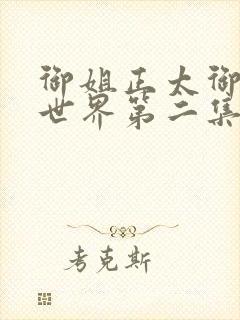 御姐正太御
世界第二集
考克斯